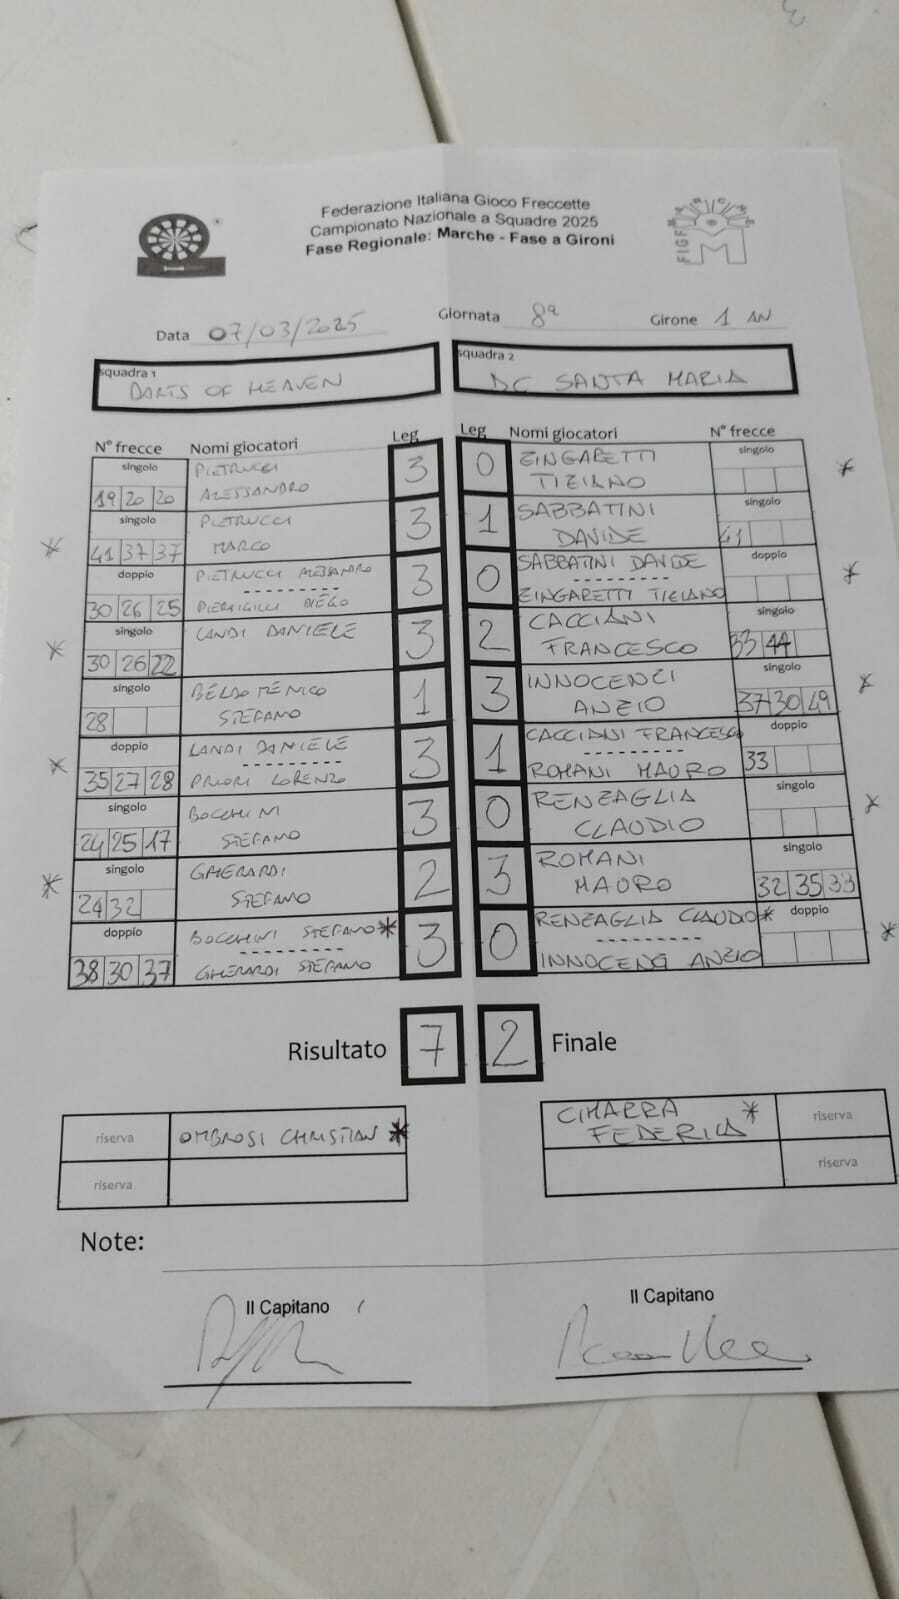 Federazione Italiana Gioco Freccette
Campionato Nazionale a Squadre 2025
Fase Regionale: Marche - Fase a Gironi
MARCHE
FIGF
M
Data 07/03/2025 Giornata 8ª Girone 1 AN
squadra 1 squadra 2
DARTS OF HEAVEN DC SANTA MARIA
N° frecce Nomi giocatori Leg Leg Nomi giocatori N° frecce
singolo PIETRUCCI 3 0 ZINGARETTI singolo *
19 20 20 ALESSANDRO TIZIANO
singolo PIETRUCCI 3 1 SABBATINI singolo
* 41 37 37 MARCO DAVIDE 41
doppio PIETRUCCI ALESSANDRO 3 0 SABBATINI DAVIDE doppio *
30 26 25 PIERSIGILLI DIEGO ZINGARETTI TIZIANO
singolo LANDI DANIELE 3 2 CACCIANI singolo
* 30 26 22 FRANCESCO 33 44
singolo BELDOMENICO 1 3 INNOCENZI singolo *
28 STEFANO ANZIO 37 30 49
doppio LANDI DANIELE 3 1 CACCIANI FRANCESCO doppio
* 35 27 28 PRIORI LORENZO ROMANI MAURO 33
singolo BOCCHINI 3 0 RENZAGLIA singolo *
24 25 17 STEFANO CLAUDIO
singolo GHERARDI 2 3 ROMANI singolo
* 24 32 STEFANO MAURO 32 35 33
doppio BOCCHINI STEFANO* 3 0 RENZAGLIA CLAUDIO* doppio *
38 30 37 GHERARDI STEFANO INNOCENZI ANZIO
Risultato 7 2 Finale
riserva OMBROSI CHRISTIAN * CIMARRA * riserva
FEDERICA
riserva riserva
Note:
Il Capitano Il Capitano